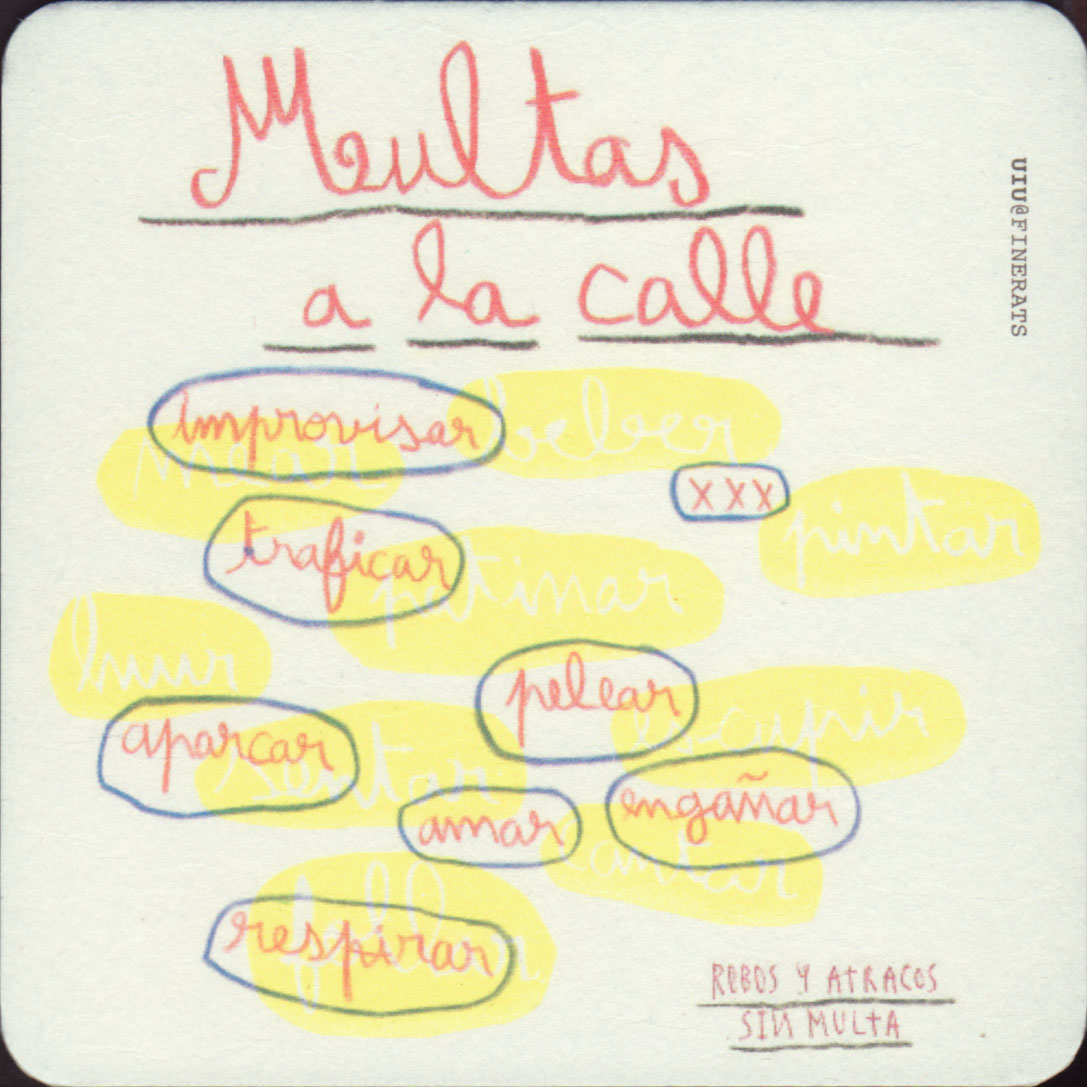 Multas
a la calle
UIU@FINERATS
improvisar
beber
mear
xxx
pintar
traficar
patinar
huir
pelear
escupir
aparcar
sentar
amar
engañar
cantar
respirar
ROBOS Y ATRACOS
SIN MULTA